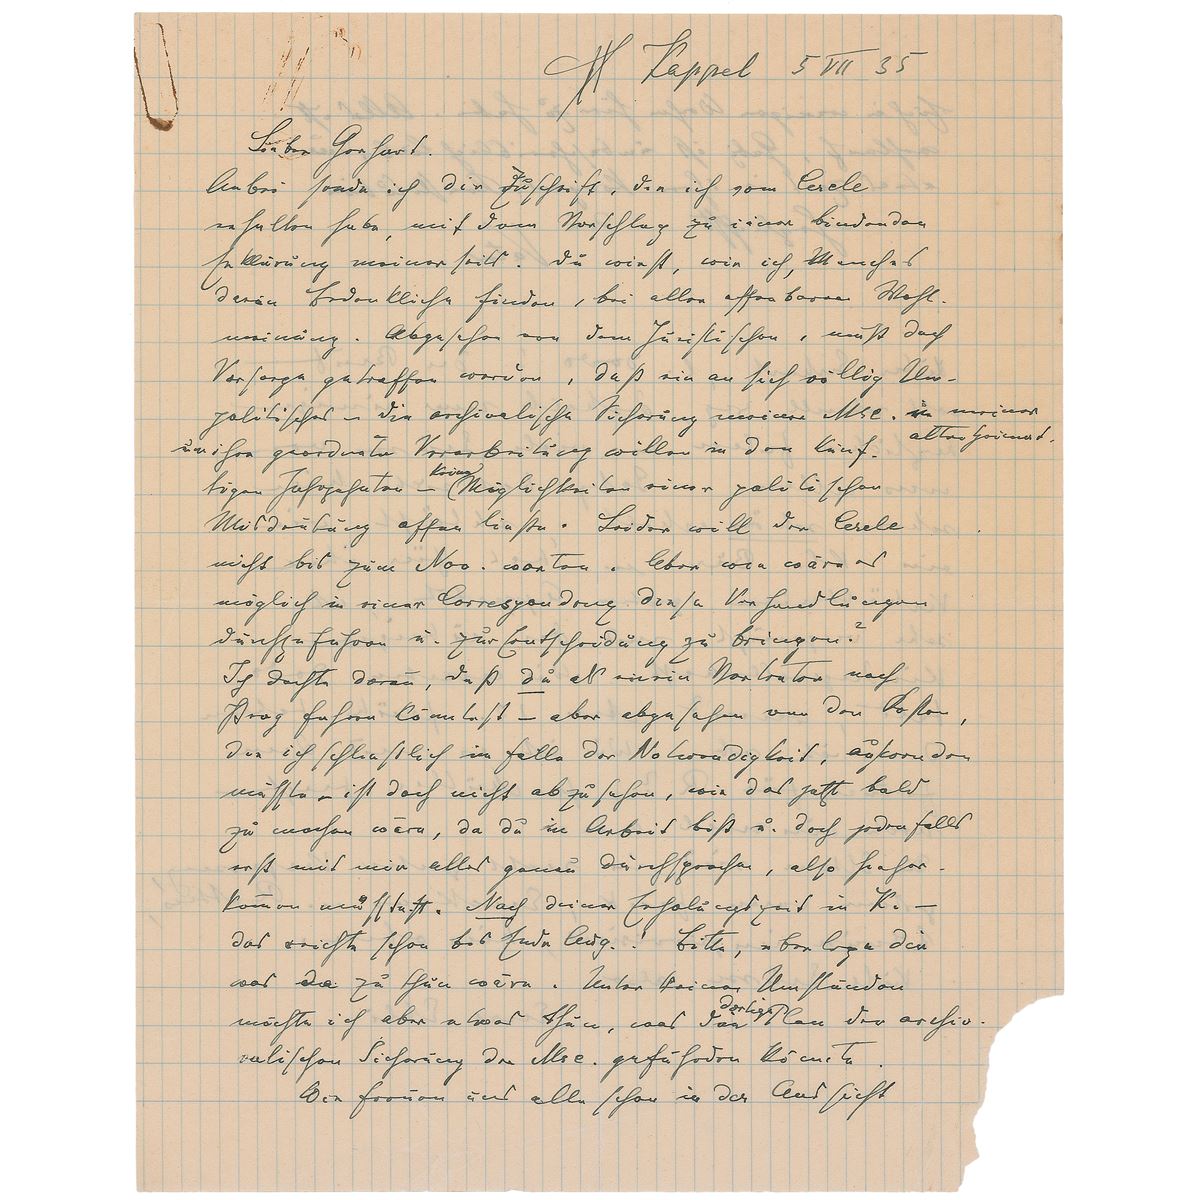 Kappel 5 VII 35
Lieber Gerhart.
Anbei sende ich die Zuschrift, die ich vom Cercle
erhalten habe, mit dem Vorschlag zu einer bindenden
Erklärung meinerseits. Du wirst, wie ich, Manches
daran bedenklich finden, bei aller offenbaren Wohl-
meinung. Abgesehen von dem Juristischen, muß doch
Vorsorge getroffen werden, daß ein an sich völlig Un-
politisches – die archivalische Sicherung meiner Msc. in meiner
alten Heimat.
um ihrer geordneten Verarbeitung willen in den künf-
tigen Jahrzehnten – keine Möglichkeiten einer politischen
Misdeutung offen ließe. Leider will der Cercle
nicht bis zum Nov. warten. Aber wie wäre es
möglich in einer Correspondenz diese Verhandlungen
durchzuführen u. zur Entscheidung zu bringen?
Ich dachte daran, daß du als mein Vertreter nach
Prag fahren könntest – aber abgesehen von den Kosten,
die ich schließlich im Falle der Notwendigkeit, aufwenden
müßte – ist doch nicht abzusehen, wie das jetzt bald
zu machen wäre, da du in Arbeit bist u. doch jedenfalls
erst mit mir alles genau durchsprechen, also hieher-
kommen müßtest. Nach deiner Erholungszeit in K. –
das reichte schon bis Ende Aug.! Bitte, überlege dir
was zu thun wäre. Unter keinen Umständen
möchte ich aber etwas thun, was den dortigen Plan der archiv-
alischen Sicherung der Msc. gefährden könnte.
Wir freuen uns alle schon in der Aussicht